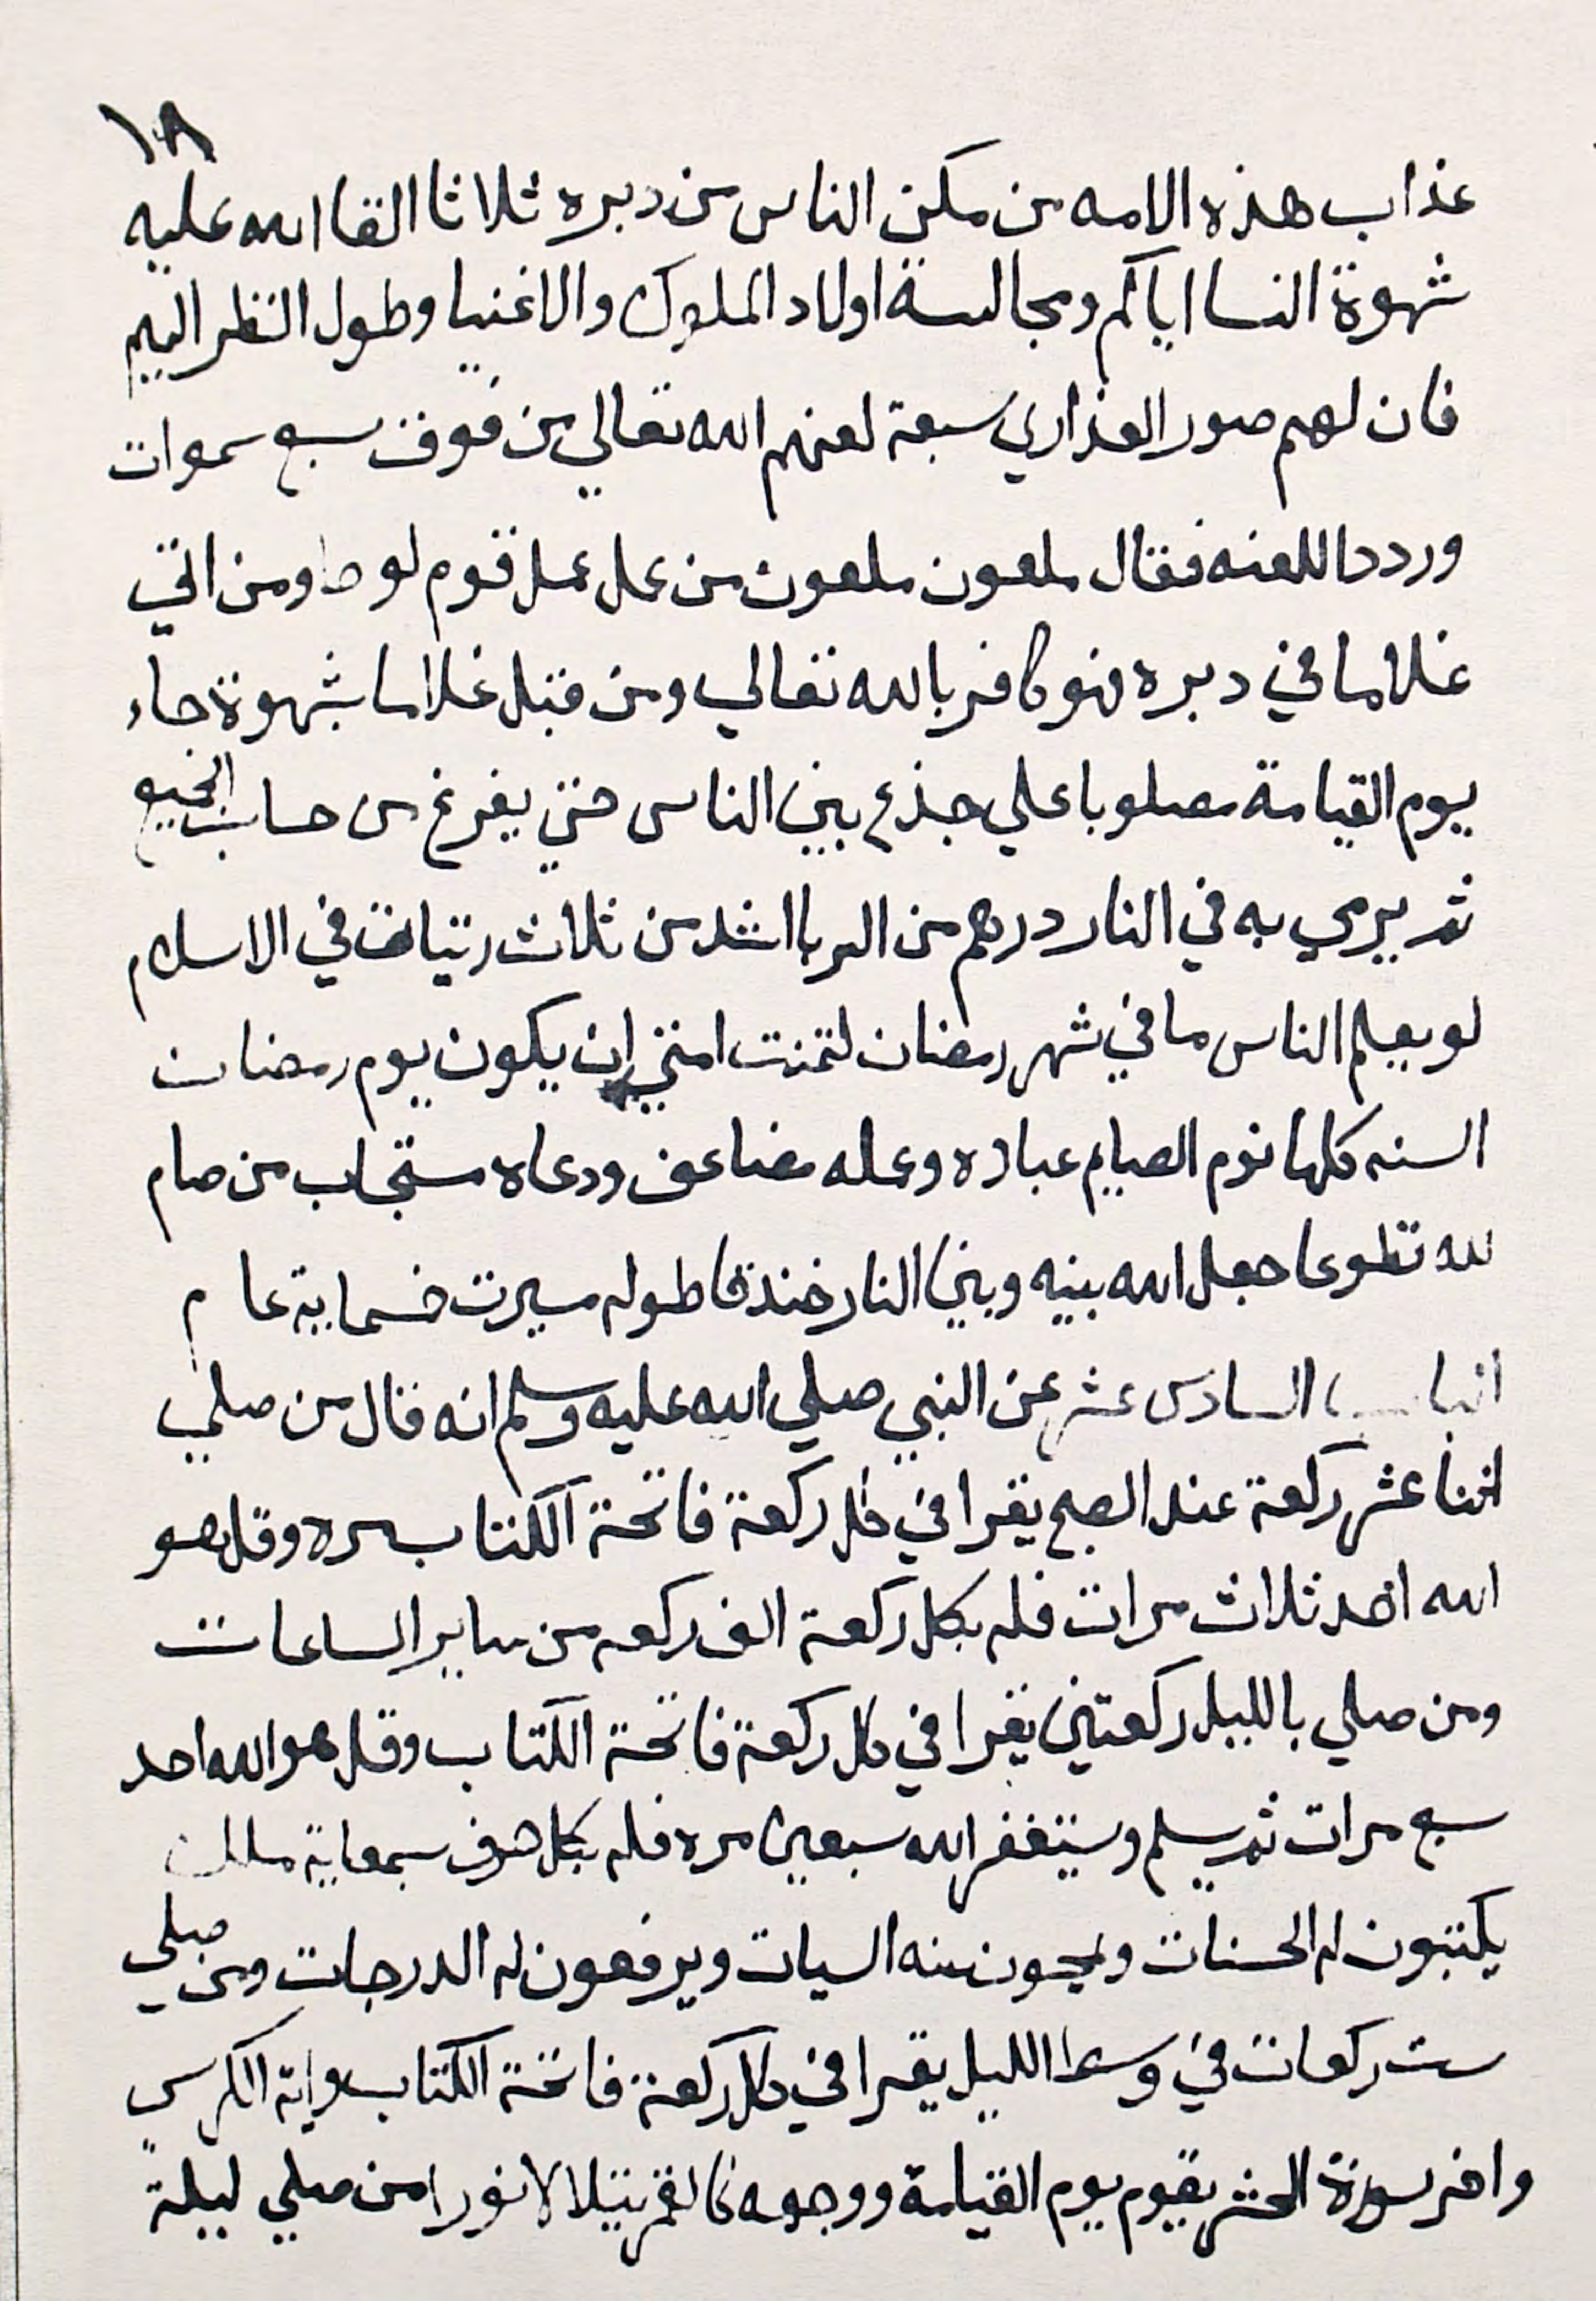 ١٨
عذاب هذه الامه من مكن الناس من دبره ثلاثا القا الله عليه
شهوة النسا اياكم ومجالسة اولاد الملوك والاغنيا وطول النظر اليهم
فان لهم صور العذاري سبعة لعنهم الله تعالي من فوق سبع سموات
وردد اللعنه فقال ملعون ملعون من عمل عمل قوم لوط ومن اتي
غلاما في دبره فهو كافر بالله تعالي ومن قبل غلاما بشهوة جاء
يوم القيامة مصلوبا علي جذع بين الناس حتي يفرغ من حساب الجميع
ثم يرمي به في النار درهم من الربا اشد من ثلاث زنيات في الاسلام
لو يعلم الناس ما في شهر رمضان لتمنت امتي ان يكون يوم رمضان
السنه كلها نوم الصيام عباده وعمله مضاعف ودعاه مستجاب من صام
لله تطوعا جعل الله بينه وبين النار خندقا طوله مسيرت خمسماية عام
الباب السادس عشر عن النبي صلي الله عليه وسلم انه قال من صلي
اثنا عشر ركعة عند الصبح يقرا في كل ركعة فاتحة الكتاب مره وقل هو
الله احد ثلاث مرات فله بكل ركعة الف ركعه من ساير الساعات
ومن صلي بالليل ركعتين يقرا في كل ركعة فاتحة الكتاب وقل هو الله احد
سبع مرات ثم يسلم ويستغفر الله سبعين مره فله بكل حرف سبعماية ملك
يكتبون له الحسنات ويمحون عنه السيات ويرفعون له الدرجات ومن صلي
ست ركعات في وسط الليل يقرا في كل ركعة فاتحة الكتاب واية الكرسي
واخر سورة الحشر يقوم يوم القيامة ووجهه كالقمر يتلالا نورا من صلي ليلة